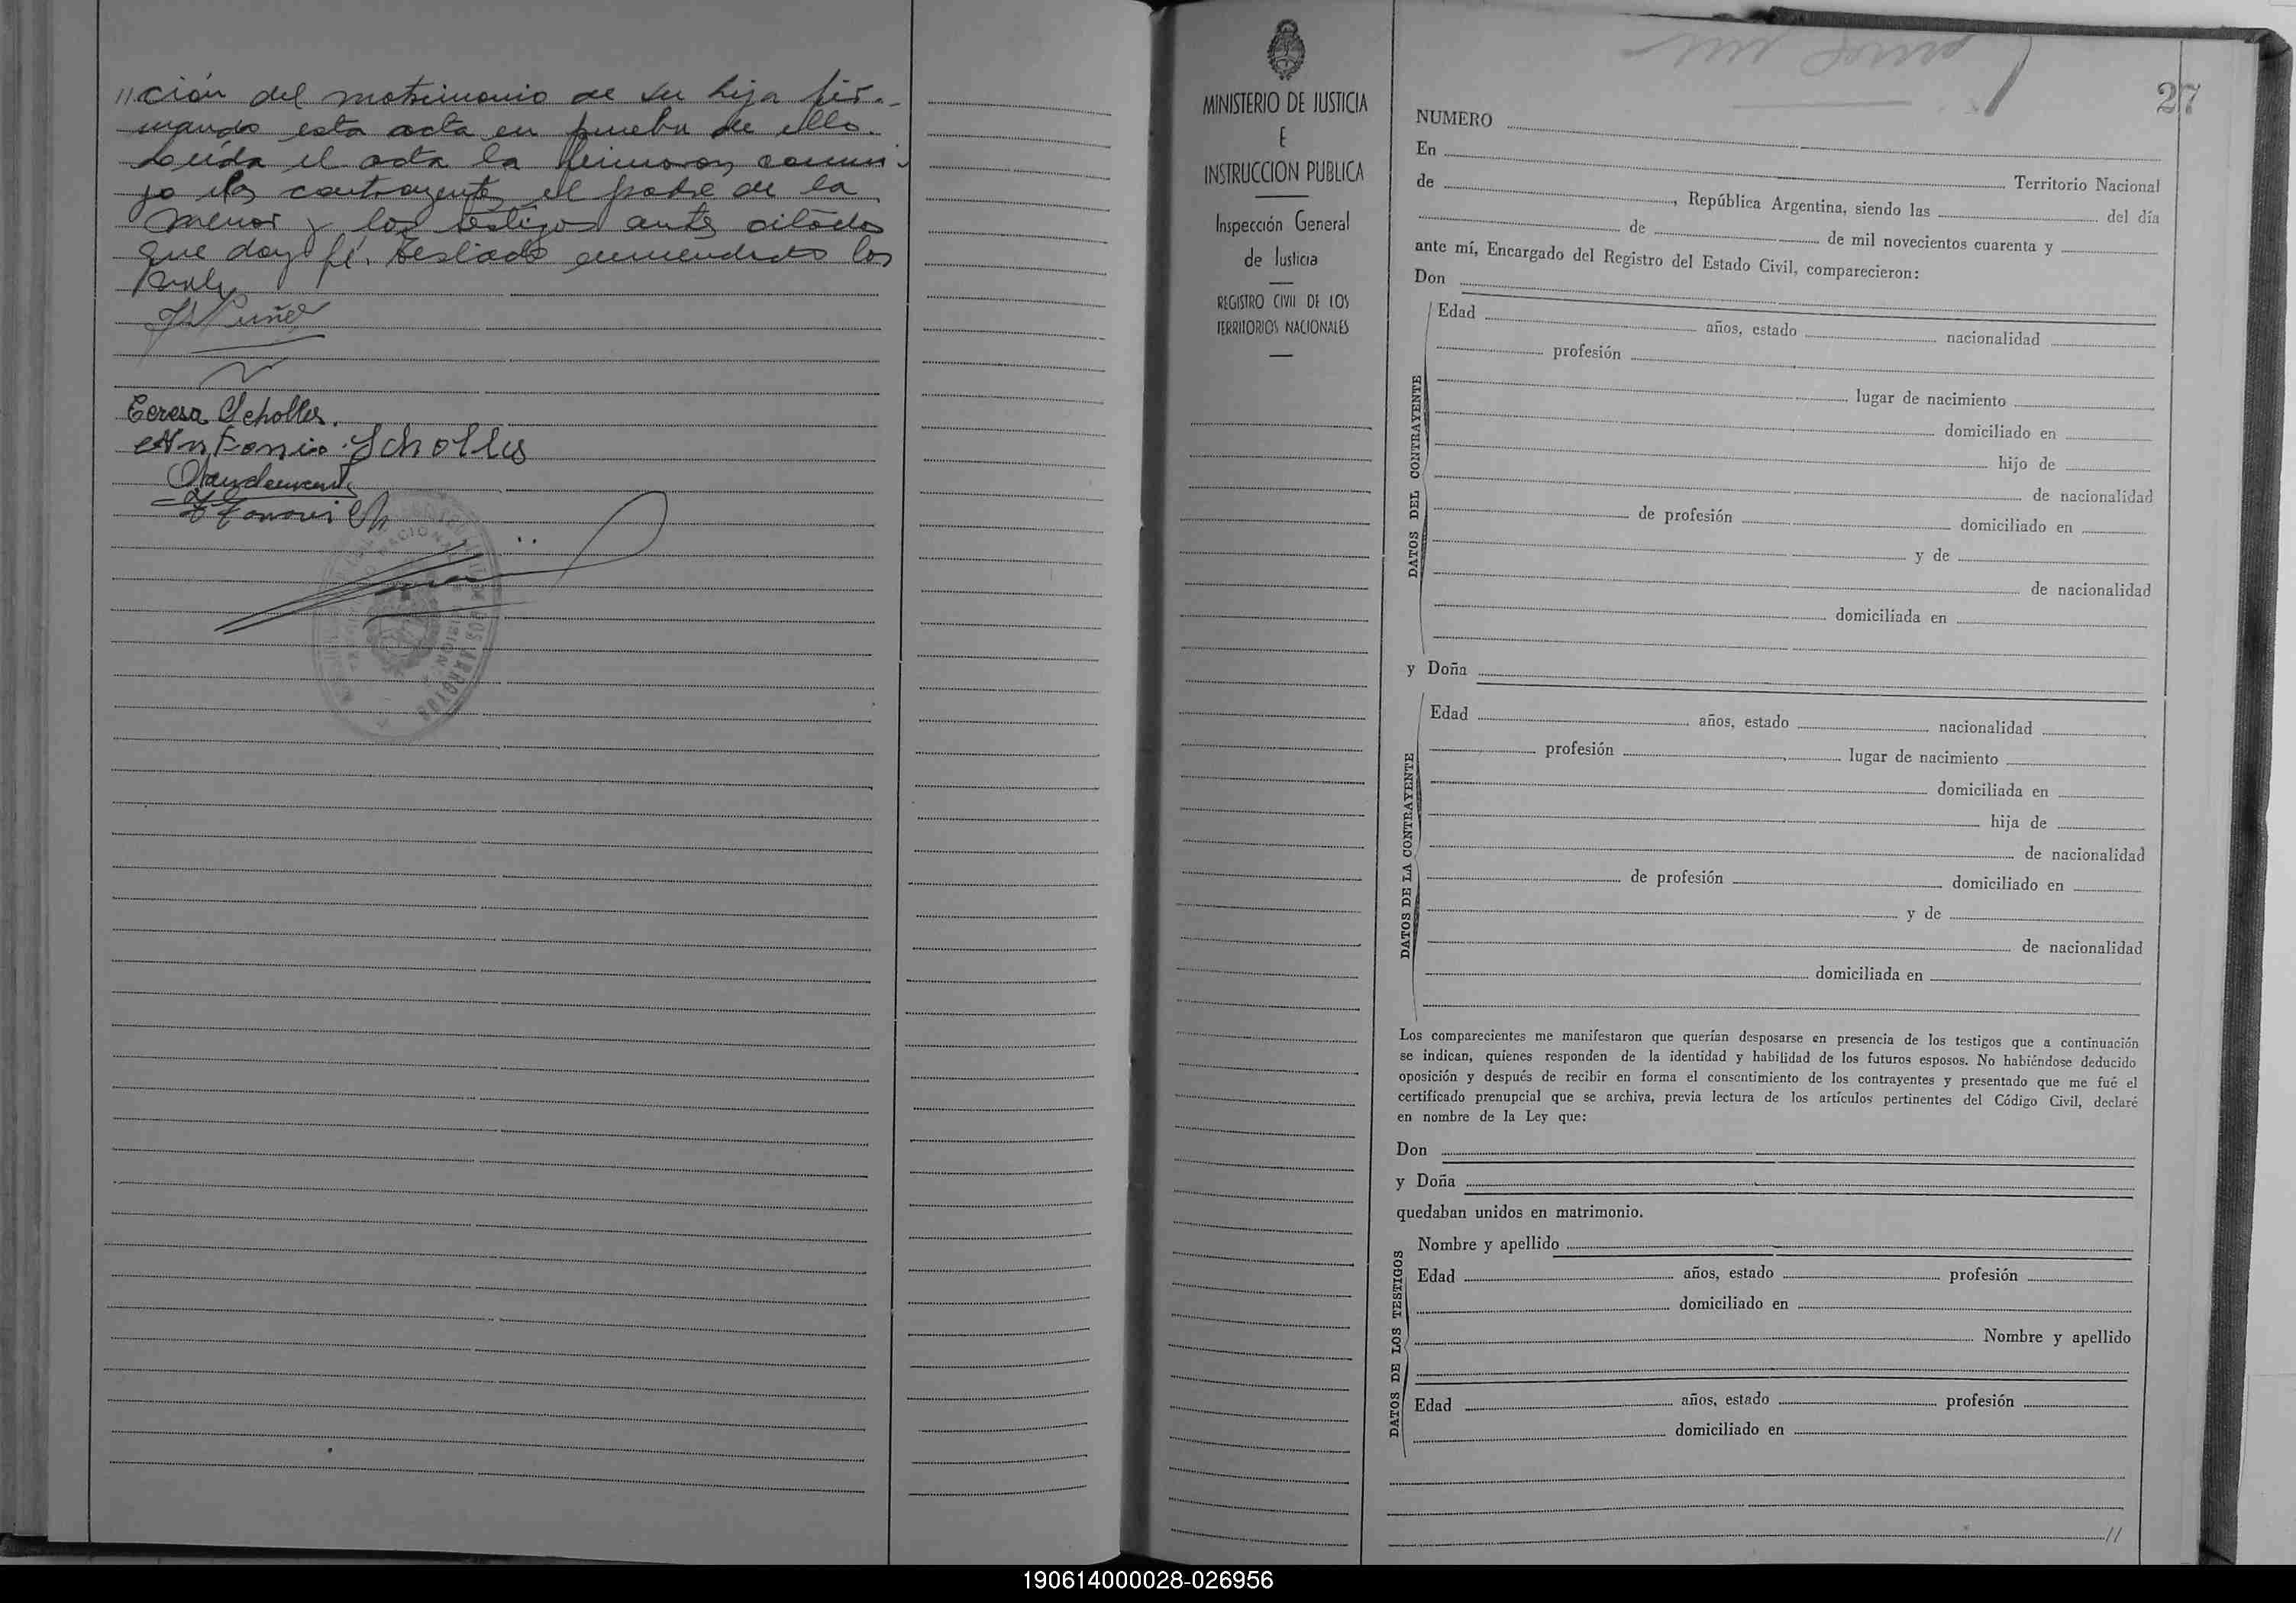 "ción del matrimonio de su hija fir-
mando esta acta en prueba de ello.
Leída el acta la firmaron conmi-
go los contrayentes el padre de la
menor y los testigos antes citados
que doy fé. Testado enmendado los
Vale
JNuñez
Teresa Scholles.
Antonio Scholles
MINISTERIO DE JUSTICIA
E
INSTRUCCION PUBLICA
Inspección General
de Justicia
REGISTRO CIVIL DE LOS
TERRITORIOS NACIONALES
27
NUMERO
En
Territorio Nacional
de , República Argentina, siendo las del día
de de mil novecientos cuarenta y
ante mí, Encargado del Registro del Estado Civil, comparecieron:
Don
DATOS DEL CONTRAYENTE
Edad años, estado nacionalidad
profesión
lugar de nacimiento
domiciliado en
hijo de
de nacionalidad
de profesión domiciliado en
y de
de nacionalidad
domiciliada en
y Doña
DATOS DE LA CONTRAYENTE
Edad años, estado nacionalidad
profesión lugar de nacimiento
domiciliada en
hija de
de nacionalidad
de profesión domiciliado en
y de
de nacionalidad
domiciliada en
Los comparecientes me manifestaron que querían desposarse en presencia de los testigos que a continuación
se indican, quienes responden de la identidad y habilidad de los futuros esposos. No habiéndose deducido
oposición y después de recibir en forma el consentimiento de los contrayentes y presentado que me fué el
certificado prenupcial que se archiva, previa lectura de los artículos pertinentes del Código Civil, declaré
en nombre de la Ley que:
Don
y Doña
quedaban unidos en matrimonio.
DATOS DE LOS TESTIGOS
Nombre y apellido
Edad años, estado profesión
domiciliado en
Nombre y apellido
Edad años, estado profesión
domiciliado en
//
190614000028-026956